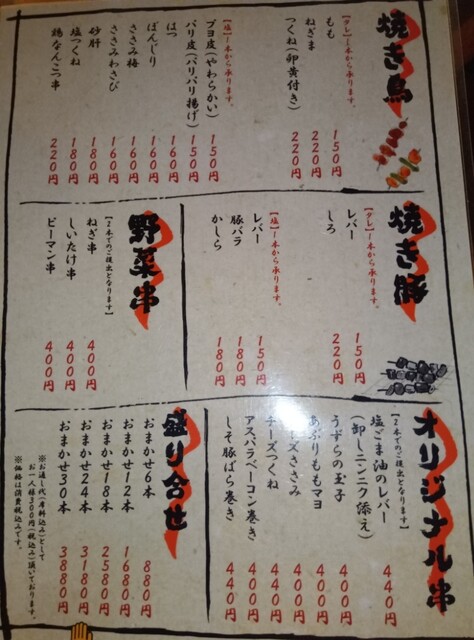 焼き鳥
【タレ】1本から承ります。
もも 150円
ねぎま 220円
つくね(卵黄付き) 220円
【塩】1本から承ります。
ブヨ皮(やわらかい) 150円
パリ皮(パリパリ揚げ) 150円
はつ 160円
ぼんじり 160円
ささみ梅 160円
ささみわさび 160円
砂肝 180円
塩つくね 180円
鶏なんこつ串 220円
焼き豚
【タレ】1本から承ります。
レバー 150円
しろ 220円
【塩】1本から承ります。
レバー 150円
豚バラ 180円
かしら 180円
野菜串
【2本でのご提出となります】
ねぎ串 400円
しいたけ串 400円
ピーマン串 400円
オリジナル串
【2本でのご提出となります】
塩ごま油のレバー
(卸しニンニク添え) 440円
うずらの玉子 400円
あぶりももマヨ 400円
ーズささみ 400円
チーズつくね 400円
アスパラベーコン巻き 440円
しそ豚ばら巻き 440円
盛り合せ
おまかせ6本 880円
おまかせ12本 1680円
おまかせ18本 2580円
おまかせ24本 3180円
おまかせ30本 3880円
※お通し代(席料込み)として
お一人様300円(税込み)頂いております。
※価格は消費税込みです。